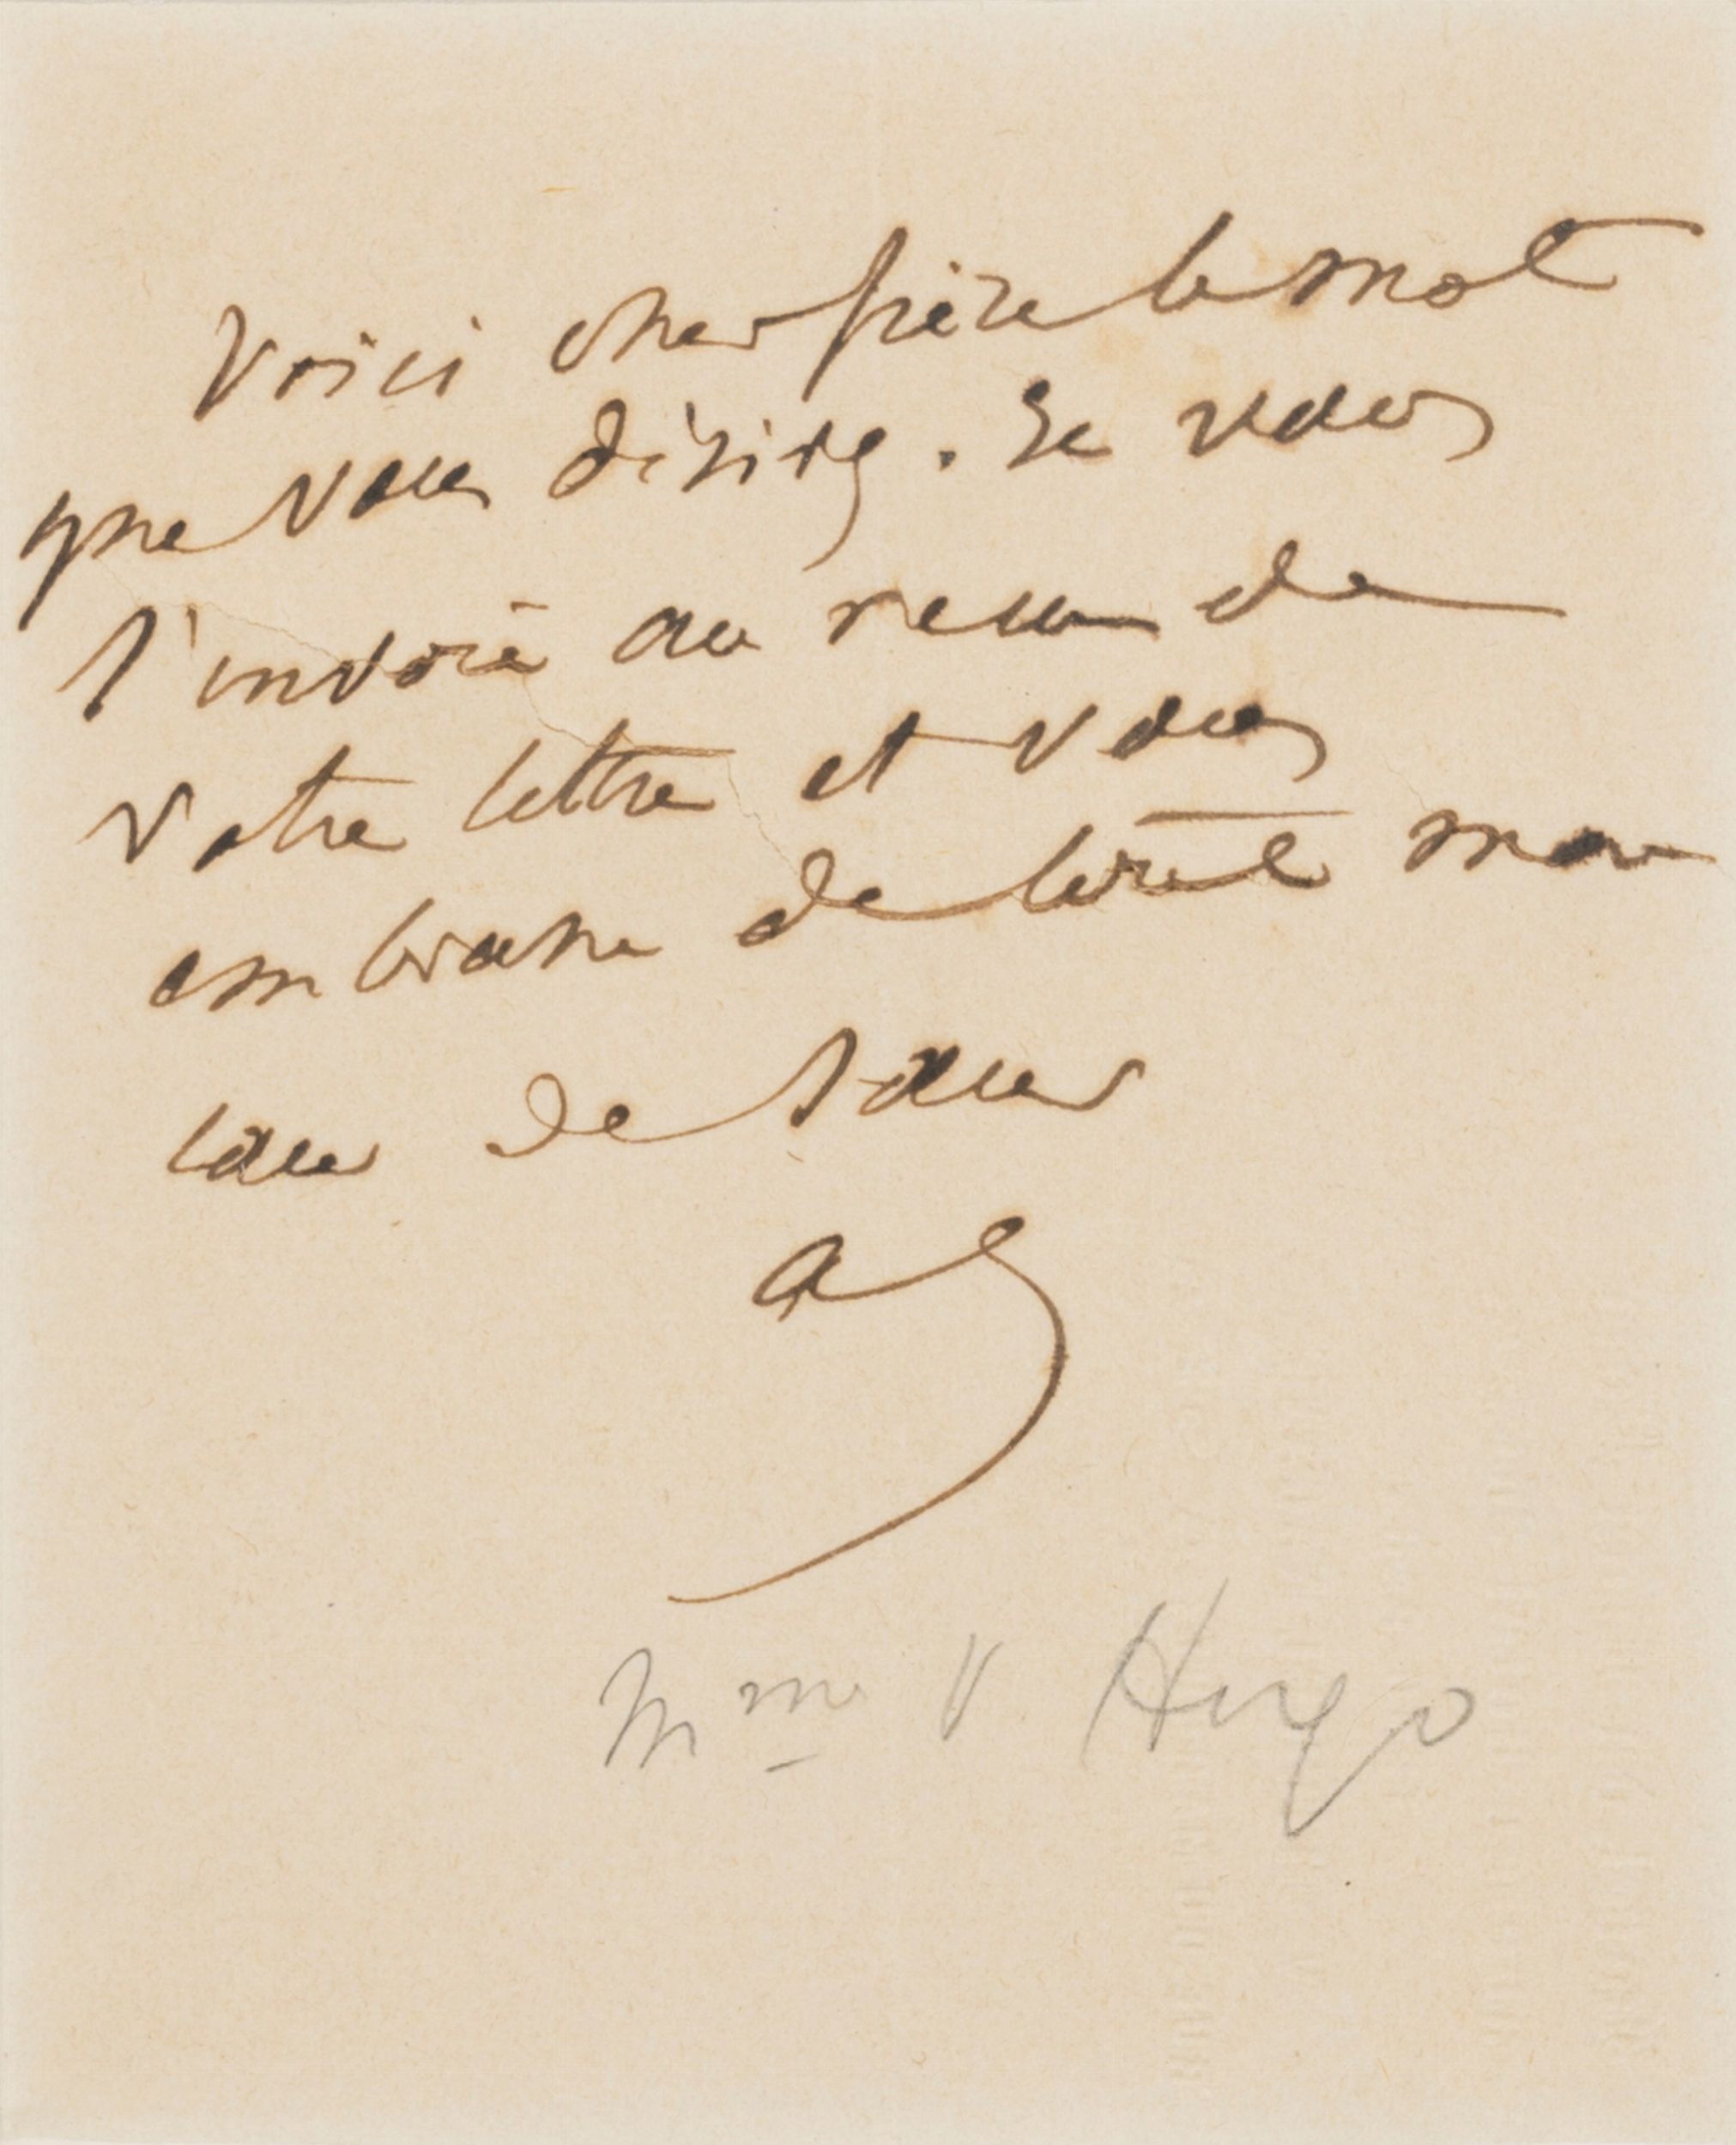 Voici cher frère le mot
que vous désirez. Je vous
l'envoie au reçu de
votre lettre et vous
embrasse de tout mon
cœur de sœur
A
Mme V. Hugo